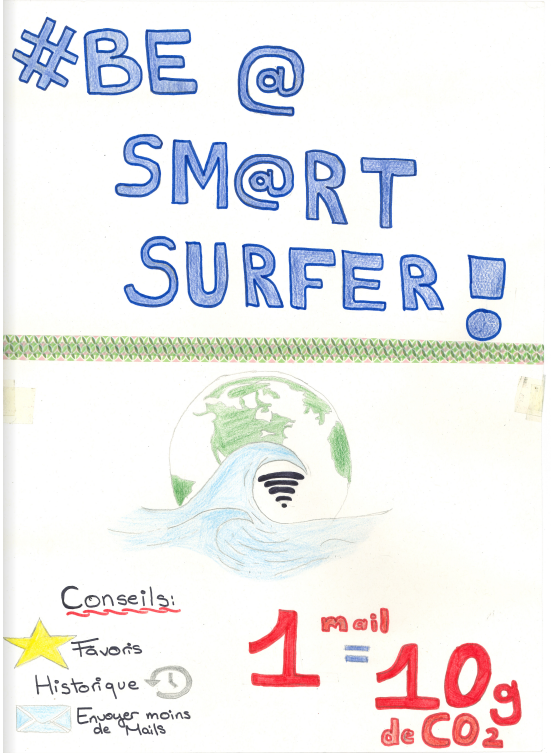 #BE @
SM@RT
SURFER!
Conseils:
Favoris
Historique
Envoyer moins
de Mails
1 mail
=
10g
de CO2